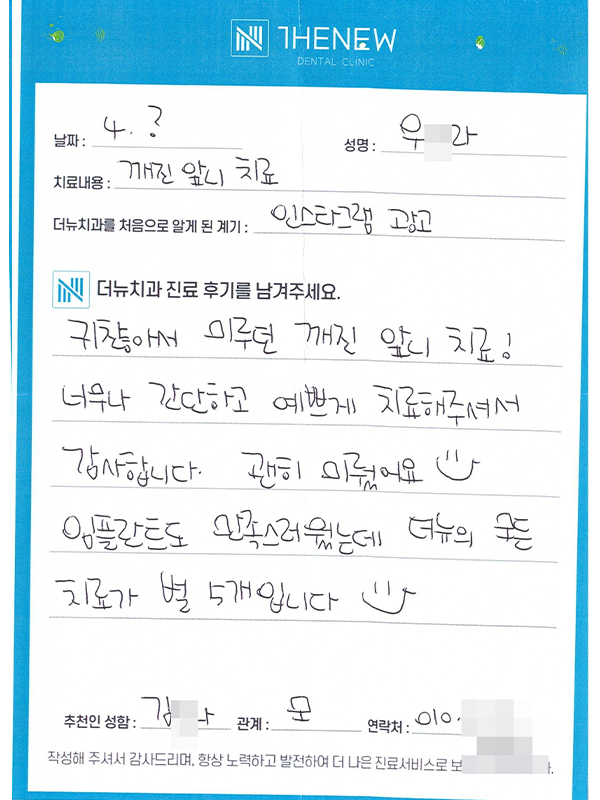 THENEW
DENTAL CLINIC
날짜 : 4. ?
성명 : 우 라
치료내용 : 깨진 앞니 치료
더뉴치과를 처음으로 알게 된 계기 : 인스타그램 광고
더뉴치과 진료 후기를 남겨주세요.
귀찮아서 미루던 깨진 앞니 치료!
너무나 간단하고 예쁘게 치료해주셔서
감사합니다. 괜히 미뤘어요
임플란트도 만족스러웠는데 더뉴의 모든
치료가 별 5개입니다
추천인 성함 : 김 나 관계 : 모 연락처 : 010.
작성해 주셔서 감사드리며, 항상 노력하고 발전하여 더 나은 진료서비스로 보